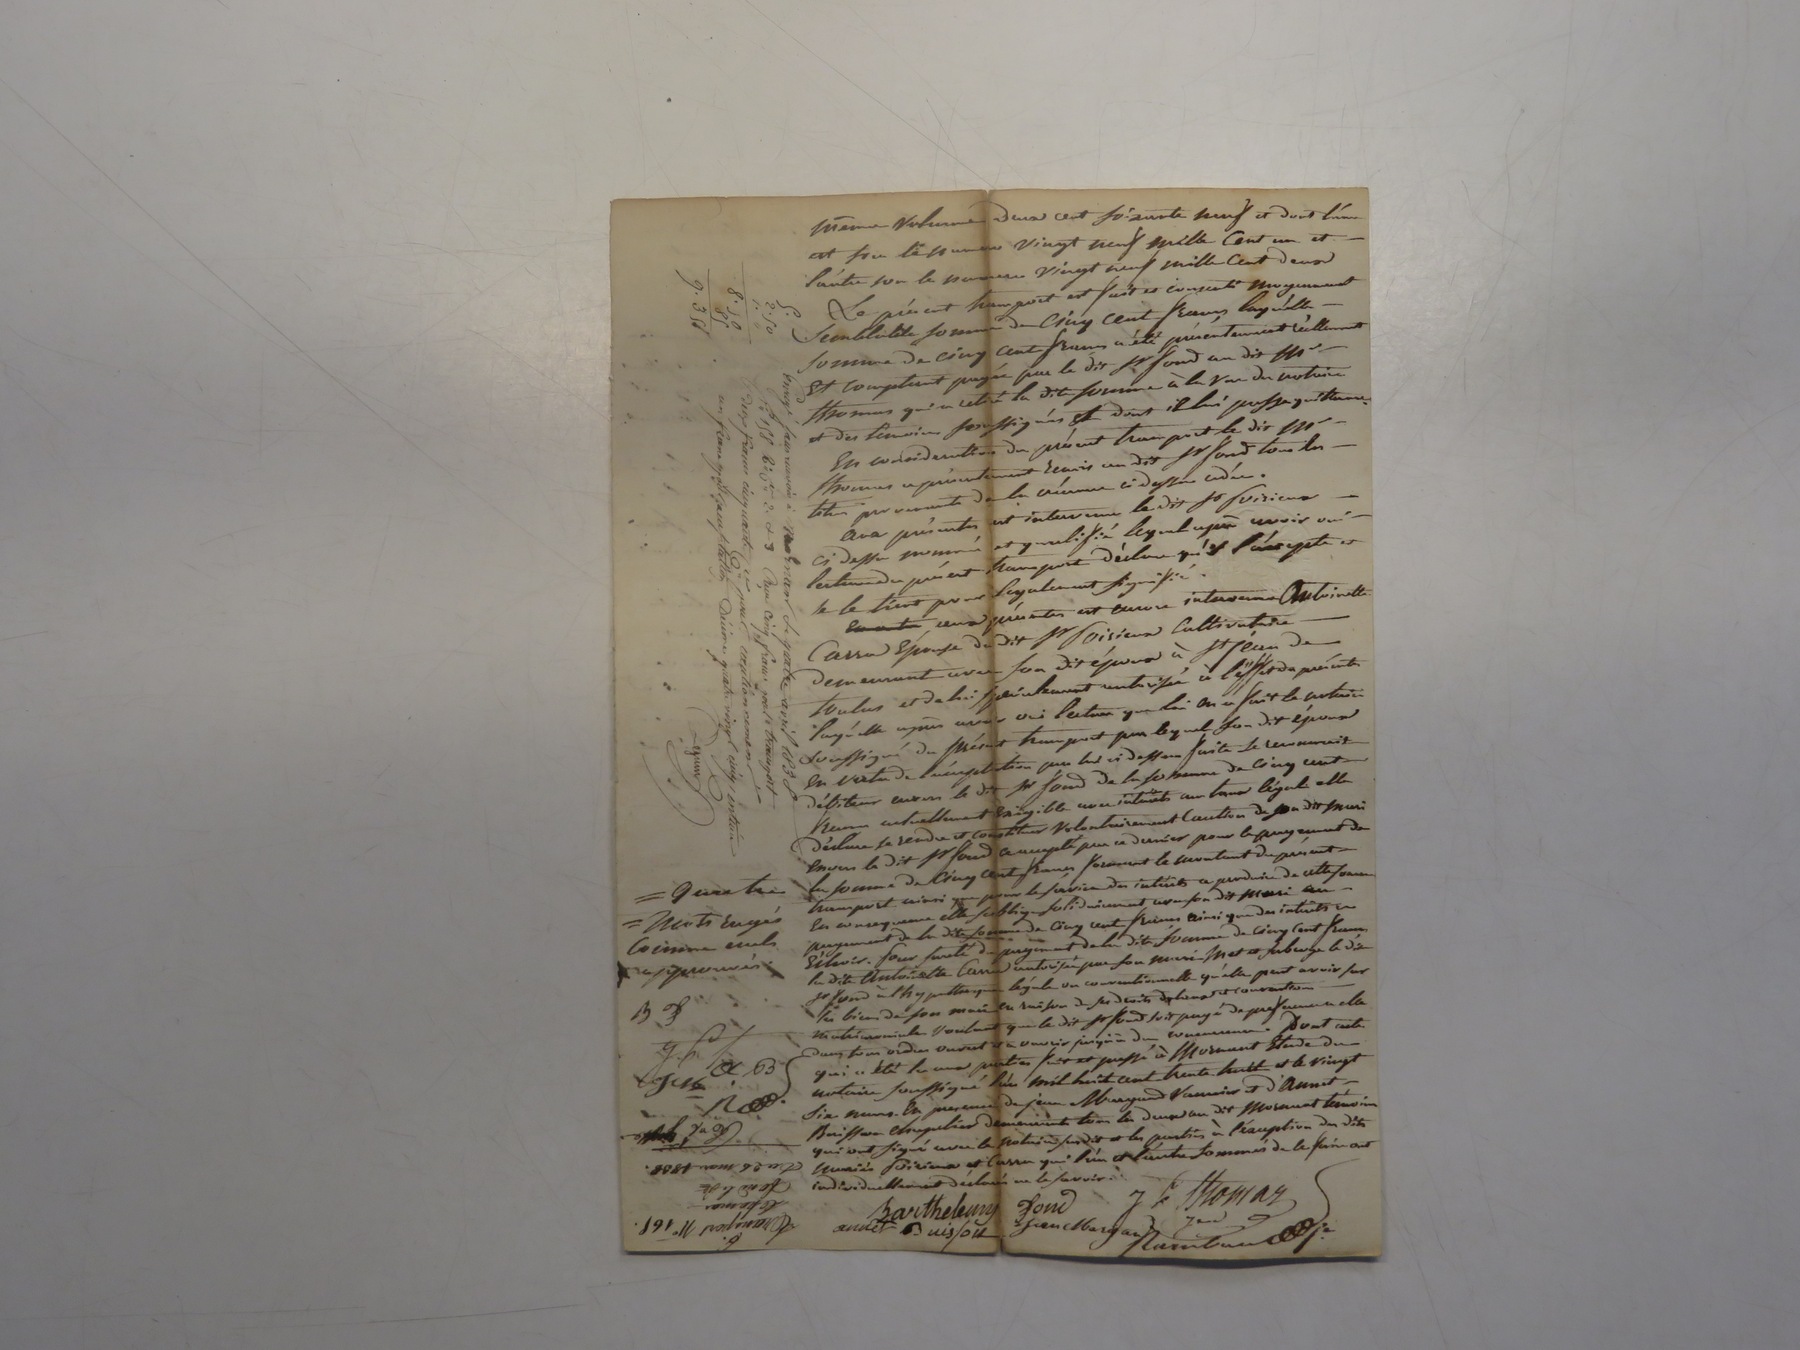 même volume deux cent soixante neuf et dont l'une
est sou le numero vingt neuf mille cent un et
l'autre sou le numero vingt neuf mille cent deux
Le présent transport est fait et consenti moyennant
Semblable somme de cinq cent francs laquelle
somme de cinq cent francs a été présentement réellement
et comptant payée par le dit sr fond au dit Mr
thomas qui a retiré la dite somme à la vue du notaire
et des temoins soussignés et dont il lui passe quittance
En consideration du présent transport le dit Mr
thomas a présentement remis au dit sr fond tous les
titres provenants de la créance ci dessus cédée.
aux présentes est intervenu le dit sr
ci dessu nommé et qualifié lequel après avoir oui
lecture du présent transport déclare qu'il l'accepte et
se le tient pour légalement signifié.
aux présentes est encore intervenue Antoinette
Carra Epouse du dit sr Cultivatrice
demeurant avec son dit époux à st jean de
toulas et de lui specialement autorisée à l'effet du présent
laquelle après avoir oui lecture que lui en a fait le notaire
soussigné du présent transport par lequel son dit époux
en vertu de l'acceptation par lui ci dessus faite se reconnait
débiteur envers le dit sr fond de la somme de cinq cent
francs actuellement exigible avec intérêts au taux légal elle
déclare se rendre et constituer volontairement Caution de son dit mari
envers le dit sr fond ce accepté par ce dernier pour le payement de
la somme de Cinq cent francs formant le montant du présent
transport ainsi que pour le service des intérêts a produire de cette somme
En consequence elle s'oblige solidairement avec son dit mari au
payement de la dite somme de cinq cent francs ainsi que des intérêts a
Echoir. Pour sureté du payement de la dite somme de cinq cent francs
la dite Antoinette Carra autorisée par son mari Met et subroge le dit
sr fond à l'hypothèque légale ou conventionnelle qu'elle peut avoir sur
les biens de son mari en raison de ses droits et convention
matrimoniale voulant que le dit sr fond soit payé de preference a elle
dans tous ordres ouvert et a ouvrir jusqu'a due concurrence. Dont acte
qui a été lu aux parties fait et passé à Mornant Etude du
notaire soussigné l'an mil huit cent trente huit et le vingt
six mars. En presence de jean Margand et d'annet
Buisson chapelier demeurant tous les deux au dit Mornant témoins
qui ont signé avec le notaire susdit et les parties à l'exception des dits
mariés et Carra qui l'un et l'autre sommés de le faire ont
individuellement déclaré ne le savoir.
Barthelemy fond
J E thomas
annet Buisson
jean Margand
= Quatre
= Mots rayés
Comme nuls
approuvés.
B F
A. B
5.
2.50
1.
8.50
85
9.35
Le quatre avril 1838
Reçu cinq francs pour transport
deux francs cinquante c. pour cautionnement
un franc pour decime quatre vingt cinq centime
Du 26 mars 1838.
Transport No 161.